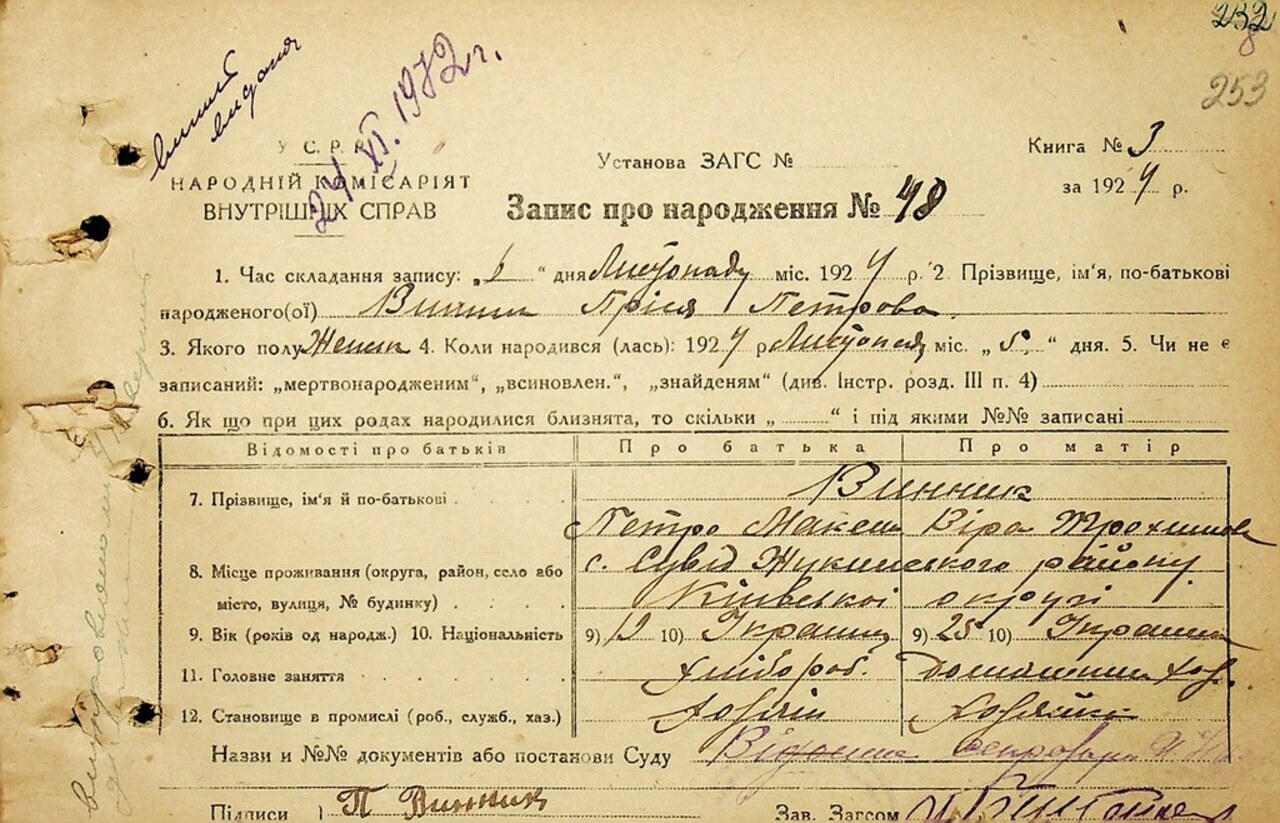 232
8
253
витяг
видано
24 XI. 1972 г.
У С. Р. Р.
НАРОДНІЙ КОМІСАРІЯТ
ВНУТРІШНІХ СПРАВ
Установа ЗАГС №
Книга № 3
за 1924 р.
Запис про народження № 48
1. Час складання запису: „6“ дня Листопаду міс. 1924 р. 2. Прізвище, ім'я, по-батькові
народженого(ої) Винник Петрова
3. Якого полу Женск 4. Коли народився (лась): 1924 р Листопаду міс. „5“ дня. 5. Чи не є
записаний: „мертвонародженим“, „всиновлен.“, „знайденям“ (див. Інстр. розд. III п. 4)
6. Як що при цих родах народилися близнята, то скільки „ “ і під якими №№ записані
Відомості про батьків Про батька Про матір
7. Прізвище, ім'я й по-батькові Винник
Петро Макси Віра Трохимова
8. Місце проживання (округа, район, село або с. Сувід Жукинського району
місто, вулиця, № будинку) Київської округи
9. Вік (років од народж.) 10. Національність 9) 10) Украин 9) 25 10) Украин
11. Головне заняття хлібороб. Домашнии хоз.
12. Становище в промислі (роб., служб., хаз.) хозяин хозяйка
Назви и №№ документів або постанови Суду
Підписи П Винник Зав. Загсом